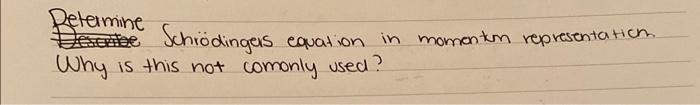 Determine
Describe Schrödingers equation in momentum representation.
Why is this not comonly used?